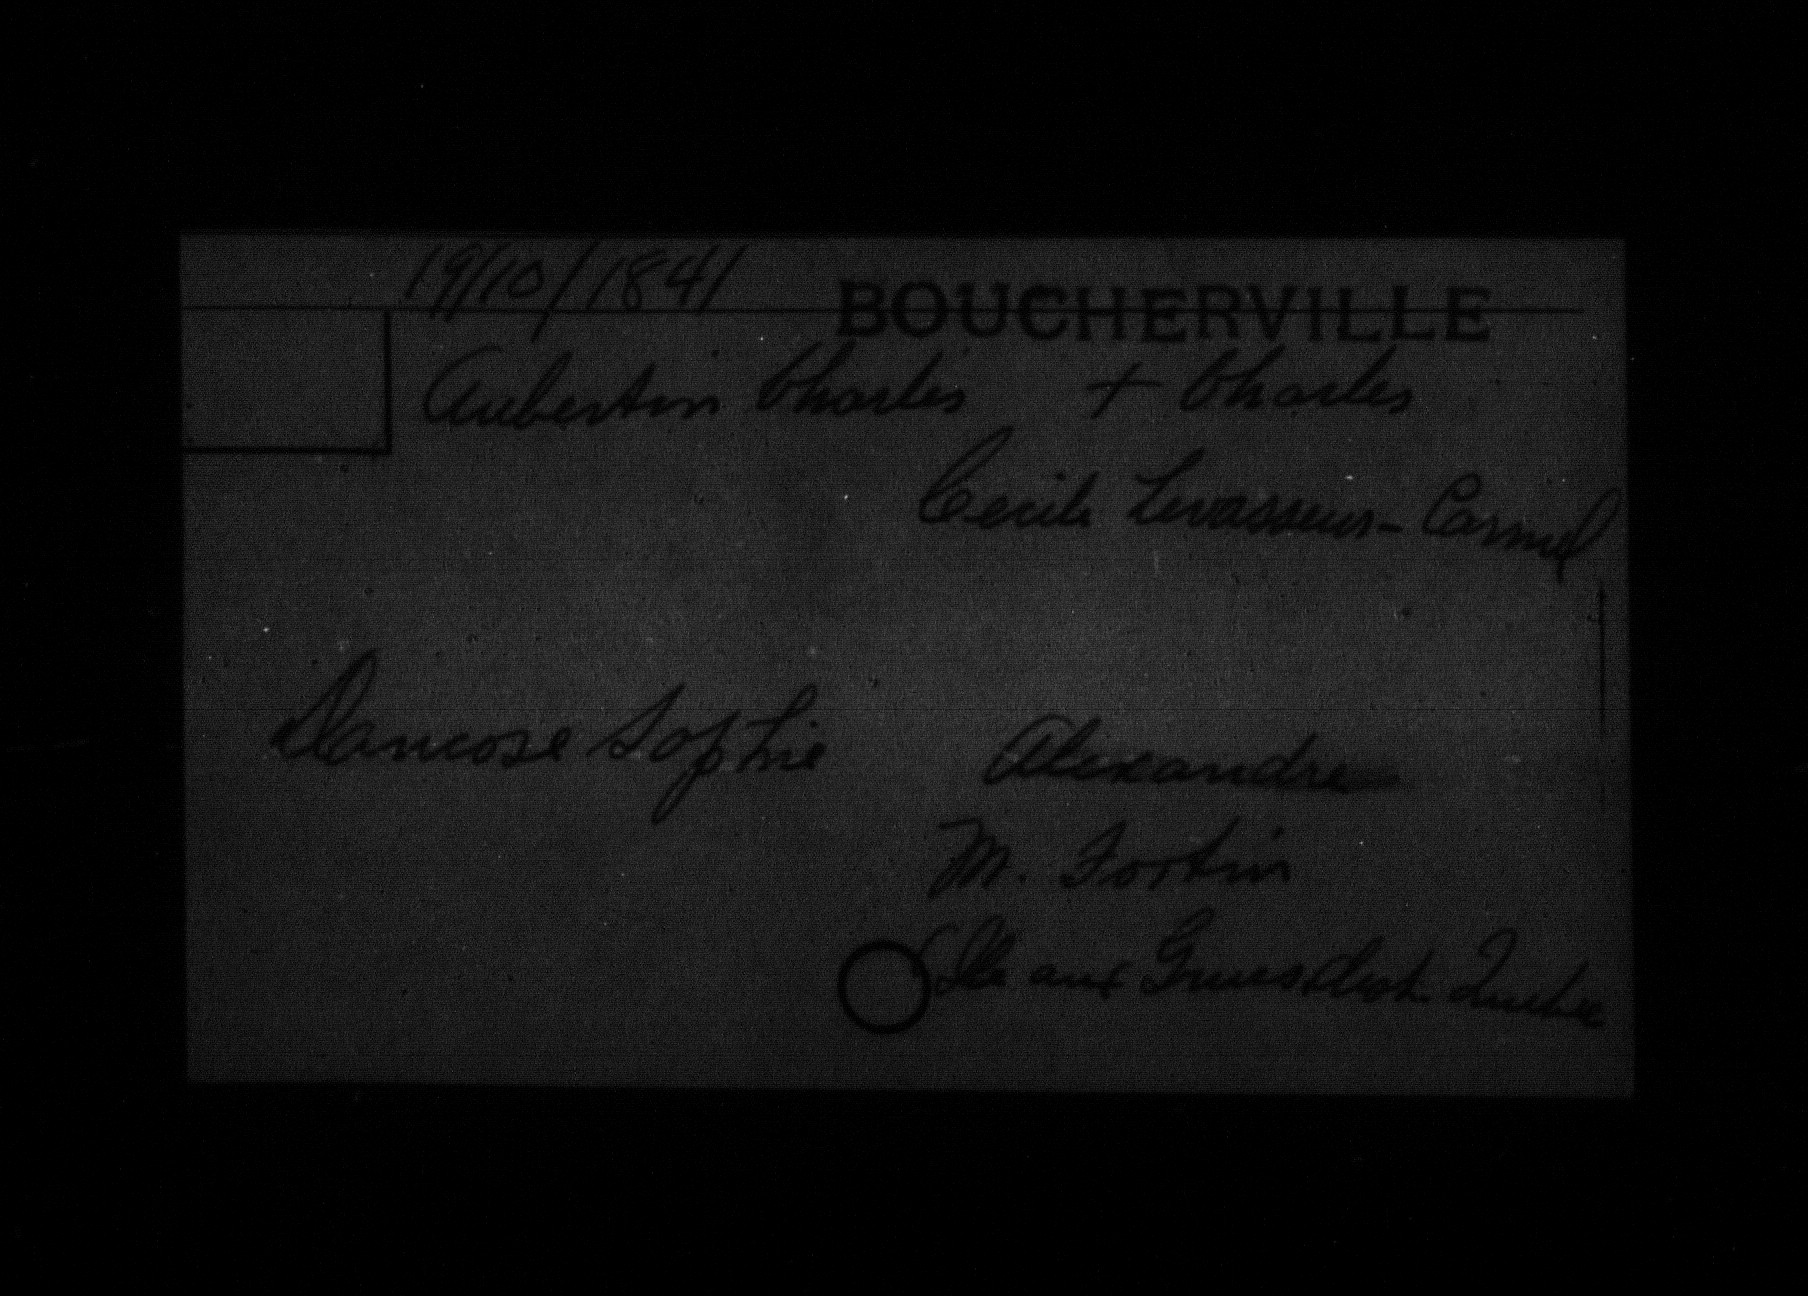 19/10/1841
BOUCHERVILLE
Aubertin Charles + Charles
Cecile Levasseur-Carmel
Dancose Sophie Alexandre
M. Fortin
(Ile aux Grues Arch. Quebec